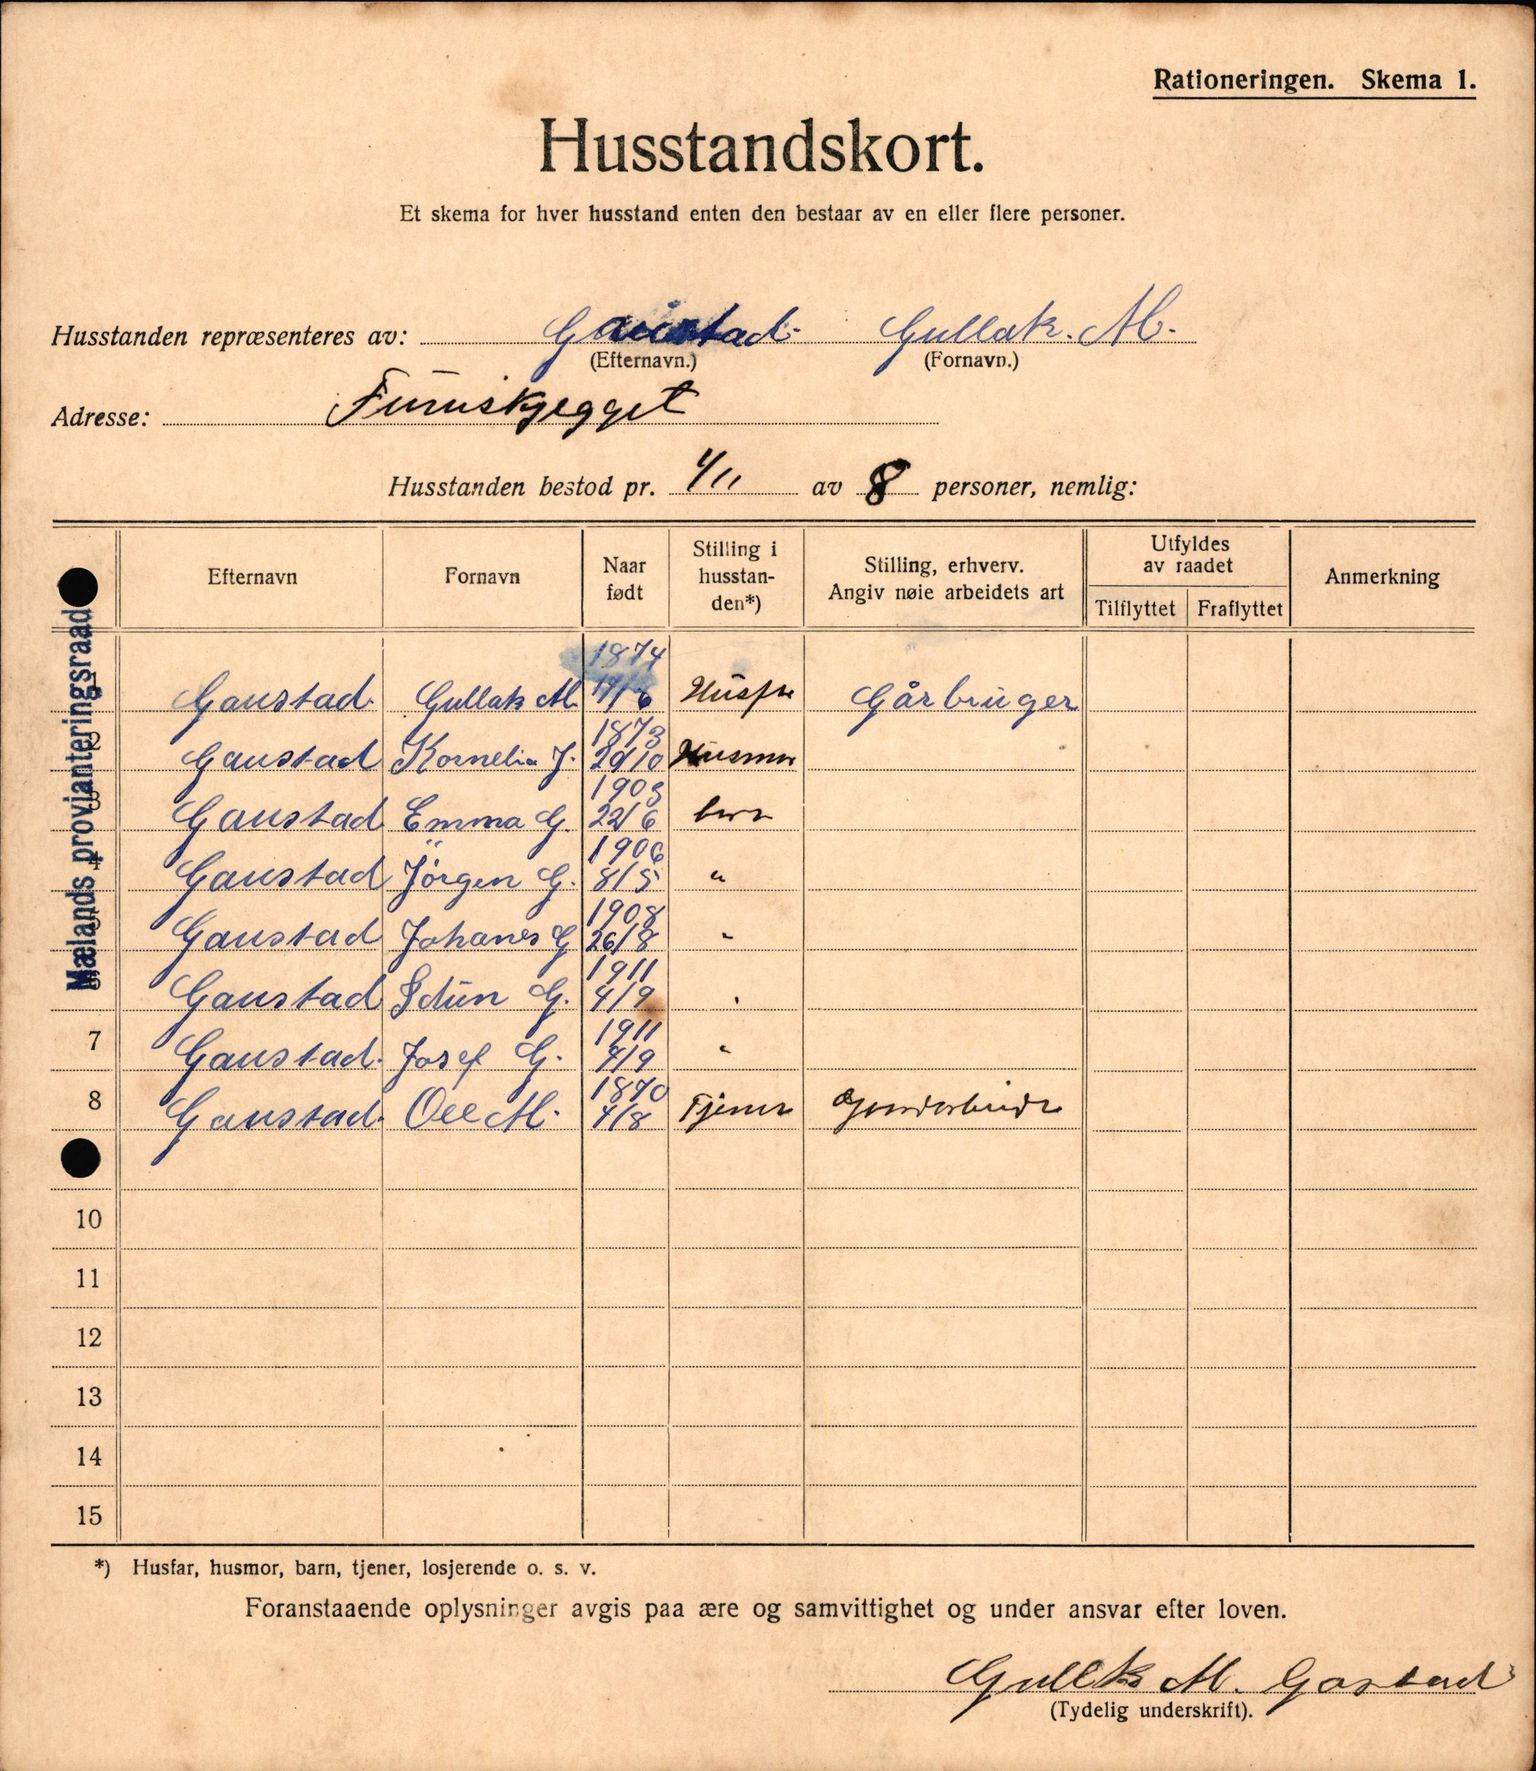 Rationeringen. Skema 1.
Husstandskort.
Et skema for hver husstand enten den bestaar av en eller flere personer.
Husstanden repræsenteres av: Gaustad Gullak. M.
(Efternavn.) (Fornavn.)
Adresse: Furuskjegget
Husstanden bestod pr. 4/11 av 8 personer, nemlig:
Efternavn Fornavn Naar født Stilling i husstan-den*) Stilling, erhverv. Angiv nøie arbeidets art Utfyldes av raadet Tilflyttet Fraflyttet Anmerkning
Mælands provianteringsraad
Gaustad Gullak M. 1874 Husfr Gårbruger
2 Gaustad Kornelia J. 1873 29/10 Husmor
3 Gaustad Emma G. 22/6 barn
4 Gaustad Jörgen G. 1906 8/5 "
5 Gaustad Johanes G 1908 26/8 "
Gaustad Idun G. 1911 4/9 "
7 Gaustad. Josef G. 1911 4/9 "
8 Gaustad. Ole M. 1870 4/8 Tjener
10
11
12
13
14
15
*) Husfar, husmor, barn, tjener, losjerende o. s. v.
Foranstaaende oplysninger avgis paa ære og samvittighet og under ansvar efter loven.
Gullk M. Gastad
(Tydelig underskrift).